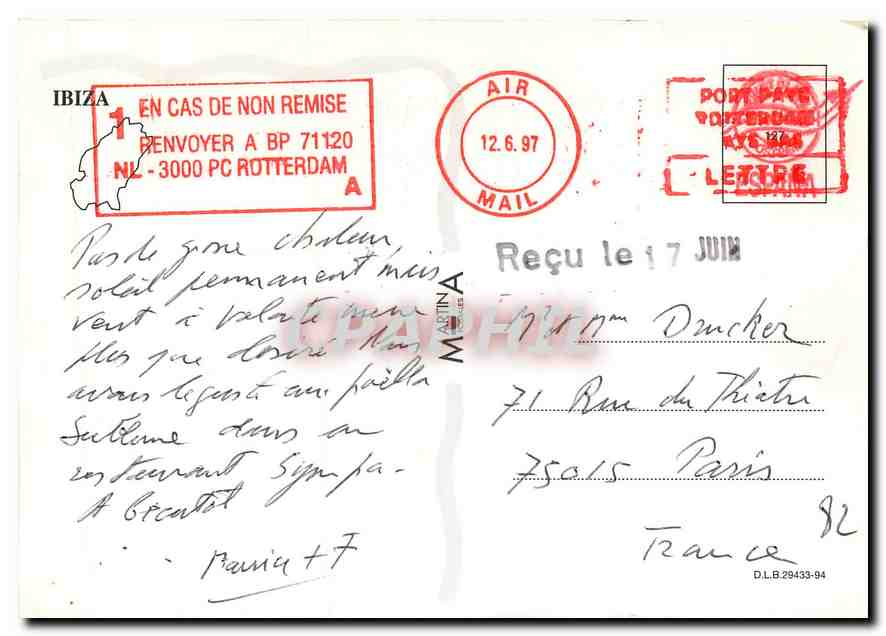 IBIZA
1 EN CAS DE NON REMISE
RENVOYER A BP 71120
NL - 3000 PC ROTTERDAM
A
AIR
12.6.97
MAIL
PORT PAYE
ROTTERDAM
PAYS BAS
LETTRE
127
ESPAÑA
Reçu le 17 JUIN
Pas de grosse chaleur,
soleil permanent mais
vent à volonté même
plus que désiré. Nous
avons dégusté une paëlla
sublime dans un
restaurant sympa -
A bientôt
+ F
MARTINA
CPAPHIL
Mr et Mme Drucker
71 Rue du Théâtre
75015 Paris
France
82
D.L.B.29433-94